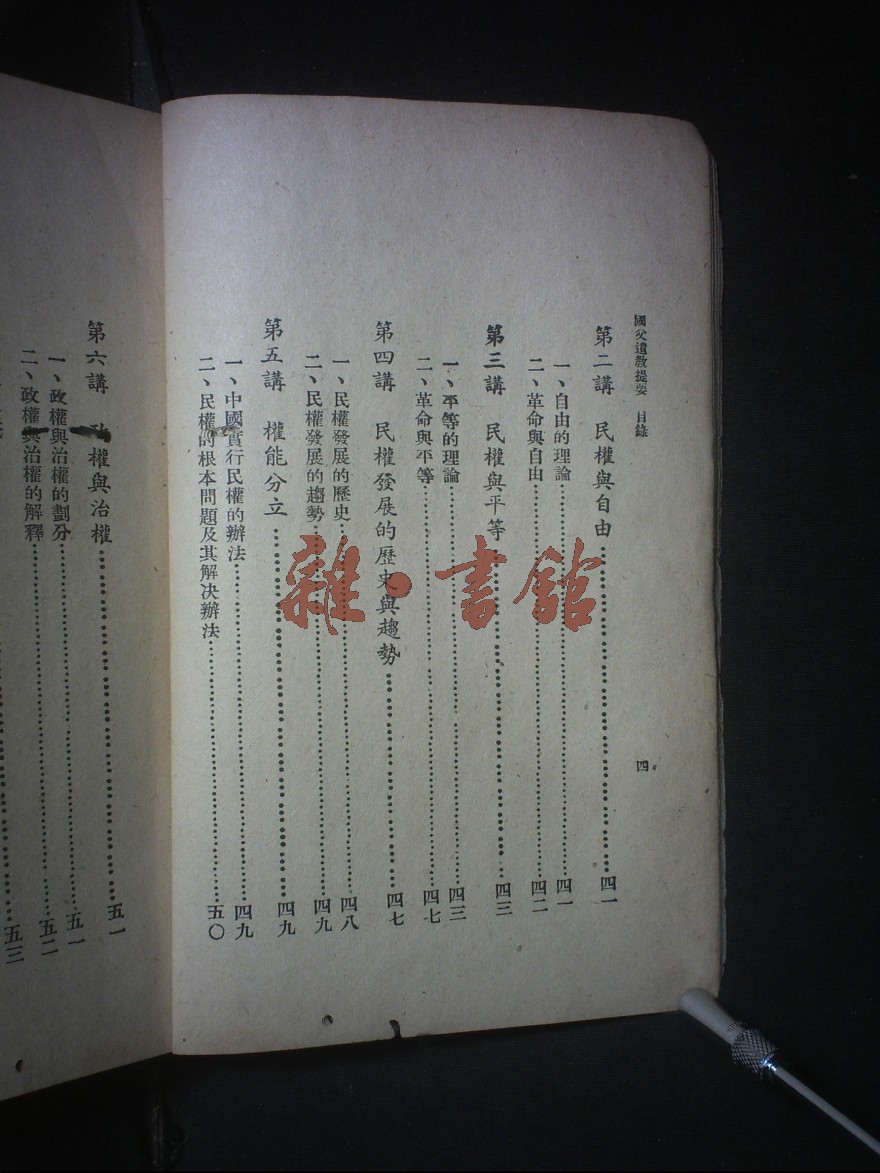 國父遺教提要 目錄
四
第二講 民權與自由……四一
一、自由的理論……四一
二、革命與自由……四二
第三講 民權與平等……四三
一、平等的理論……四三
二、革命與平等……四七
第四講 民權發展的歷史與趨勢……四七
一、民權發展的歷史……四八
二、民權發展的趨勢……四九
第五講 權能分立……四九
一、中國實行民權的辦法……四九
二、民權的根本問題及其解決辦法……五〇
第六講 政權與治權……五一
一、政權與治權的劃分……五一
二、政權與治權的解釋……五二
五三
雜·書館